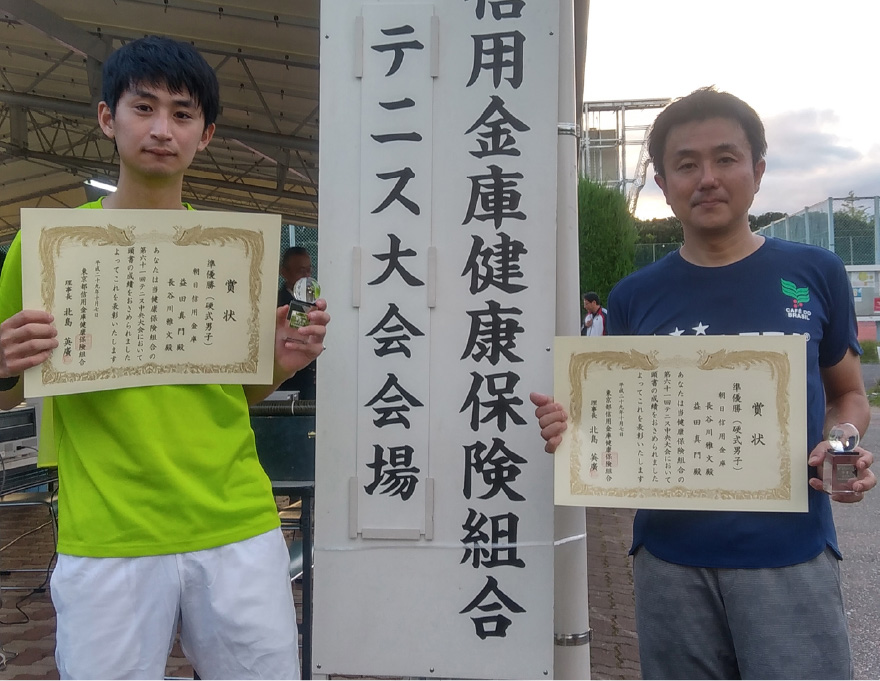 信用金庫健康保険組合
テニス大会会場
賞状
準優勝(硬式男子)
朝日信用金庫
益田真門殿
長谷川雅文殿
あなたは当健康保険組合の
第六十一回テニス中央大会において
頭書の成績をおさめられました
よってこれを表彰いたします
平成二十九年十月七日
東京都信用金庫健康保険組合
理事長 北島英廣
賞状
準優勝(硬式男子)
朝日信用金庫
長谷川雅文殿
益田真門殿
あなたは当健康保険組合の
第六十一回テニス中央大会において
頭書の成績をおさめられました
よってこれを表彰いたします
平成二十九年十月七日
東京都信用金庫健康保険組合
理事長 北島英廣
CAFÉ DO
BRASIL